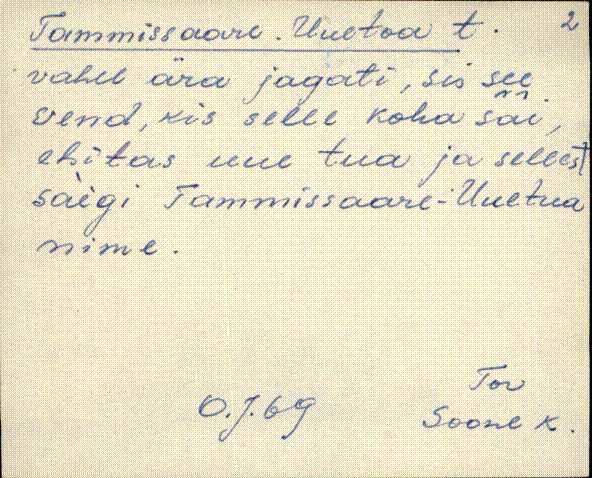 Tammissaare-Uuetoa t. 2
vahel ära jagati, sis see
vend, kis selle koha sai,
ehitas uue tua ja sellest
sàigi Tammissaare-Uuetua
nime.
Tor
O.J.69
Soone k.